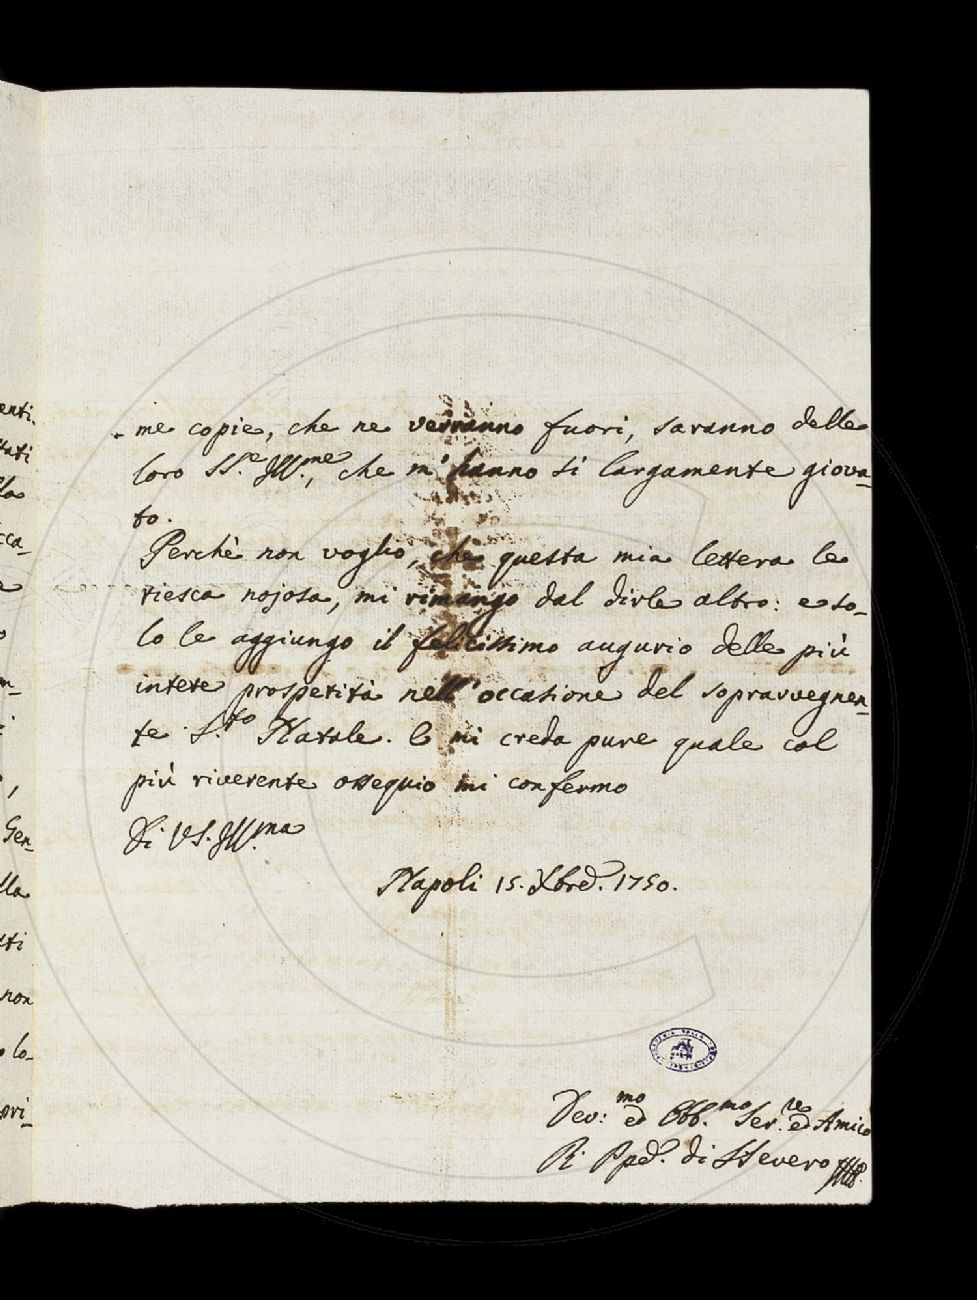 enti.
tati
la
cca-
e
o
m-
,
Gen-
lla
tti
non
o lo-
pri-
-me copie, che ne verranno fuori, saranno delle
loro SS.e Ill.me, che m'hanno sì largamente giova-
to.
Perchè non voglio, che questa mia lettera le
riesca nojosa, mi rimango dal dirle altro: e so-
lo le aggiungo il felicissimo augurio delle più
intere prosperità nell'occasione del sopravvegnen-
te S.to Natale. E mi creda pure quale col
più riverente ossequio mi confermo
Di VS. Ill.ma
Napoli 15. Xbre. 1750.
Dev:mo ed Obb.mo Ser.re ed Amico
Ppe. di SSevero